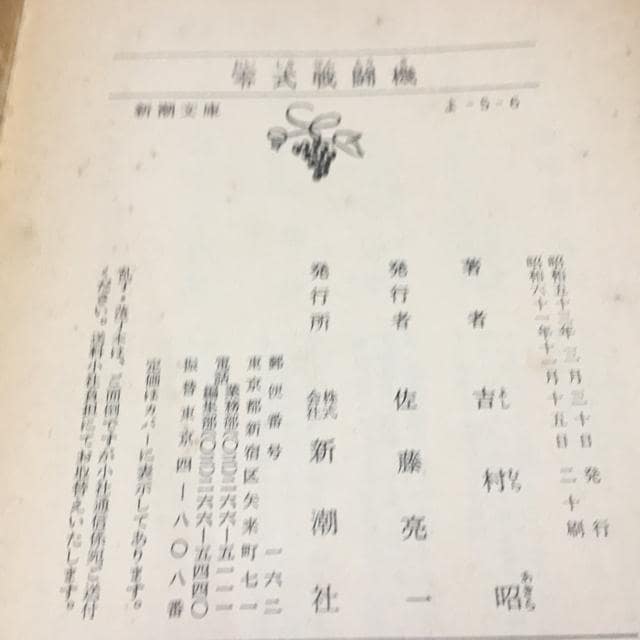 零式戦闘機
新潮文庫
よ-5-6
昭和五十三年三月三十日 発行
昭和六十一年十二月十五日 二十刷
著者 吉村昭
よしむらあきら
発行者 佐藤亮一
発行所 株式会社 新潮社
郵便番号 一六二
東京都新宿区矢来町七一
電話 業務部〇三(二六六)五一一一
編集部〇三(二六六)五四四〇
振替東京四―八〇八番
定価はカバーに表示してあります。
乱丁・落丁本は、ご面倒ですが小社通信係宛ご送付
ください。送料小社負担にてお取替えいたします。